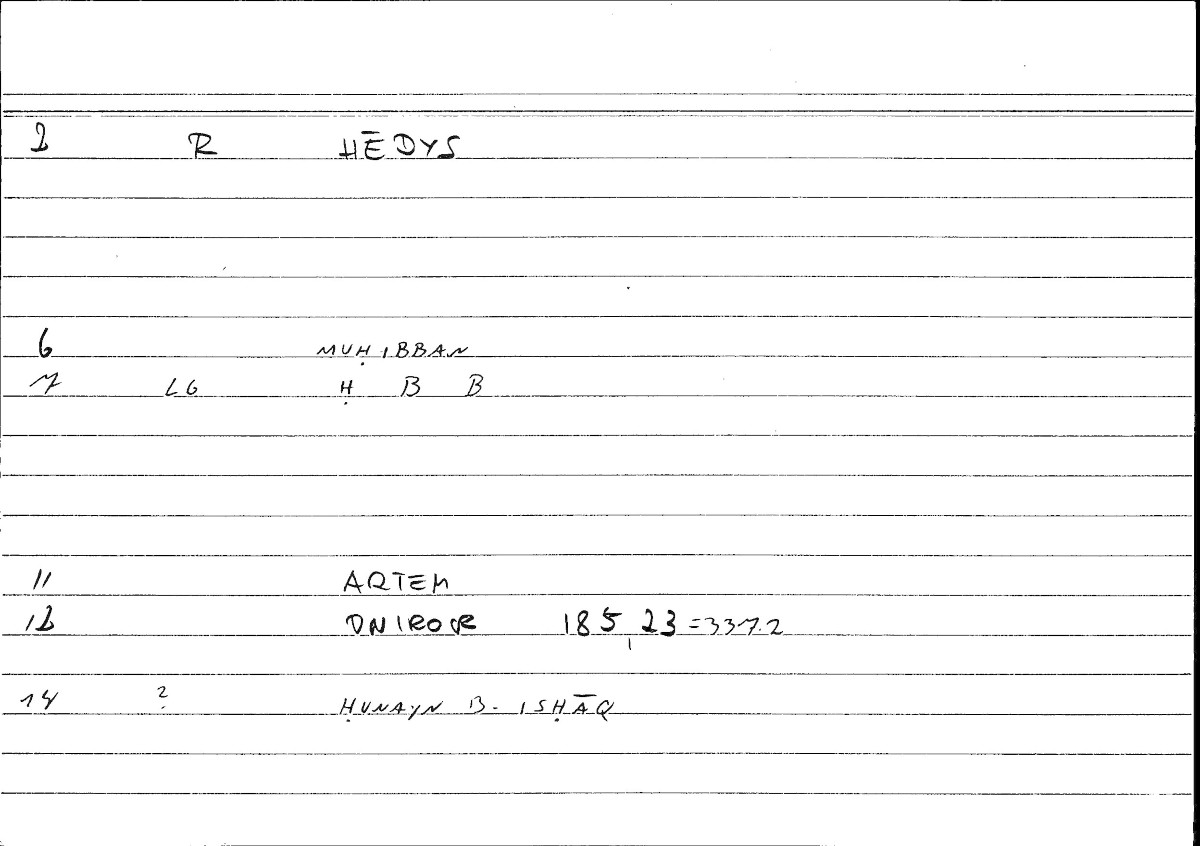 2 R HĒDYS
6 MUḤIBBAN
7 LG Ḥ B B
11 ARTEM
12 ONIROCR 185,23 =337.2
14 ? ḤUNAYN B. ISḤĀQ